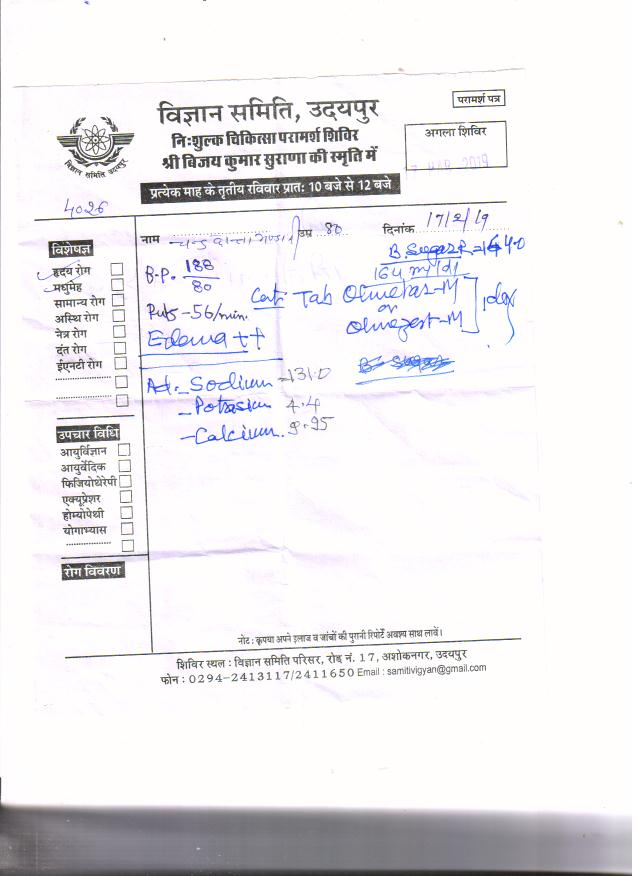 परामर्श पत्र
विज्ञान समिति, उदयपुर
निःशुल्क चिकित्सा परामर्श शिविर
श्री विजय कुमार सुराणा की स्मृति में
अगला शिविर
2019
विज्ञान समिति उदयपुर
प्रत्येक माह के तृतीय रविवार प्रातः 10 बजे से 12 बजे
4026
नाम उम्र 80 दिनांक 17/2/19
विशेषज्ञ
हृदय रोग
मधुमेह
सामान्य रोग
अस्थि रोग
नेत्र रोग
दंत रोग
ईएनटी रोग
B.P. 188
80
Puls - 56/min.
Edema ++
B. Sugar R =
164 m/dl
Cont. Tab Olmetas-M
or
Olmezest-M
Ad. - Sodium - 131.0
- Potasium 4.4
- Calcium. 9.95
उपचार विधि
आयुर्विज्ञान
आयुर्वेदिक
फिजियोथेरेपी
एक्यूप्रेशर
होम्योपेथी
योगाभ्यास
रोग विवरण
नोट : कृपया अपने इलाज व जांचों की पुरानी रिपोर्टें अवश्य साथ लावें।
शिविर स्थल : विज्ञान समिति परिसर, रोड़ नं. 17, अशोकनगर, उदयपुर
फोन : 0294-2413117/2411650 Email : samitivigyan@gmail.com